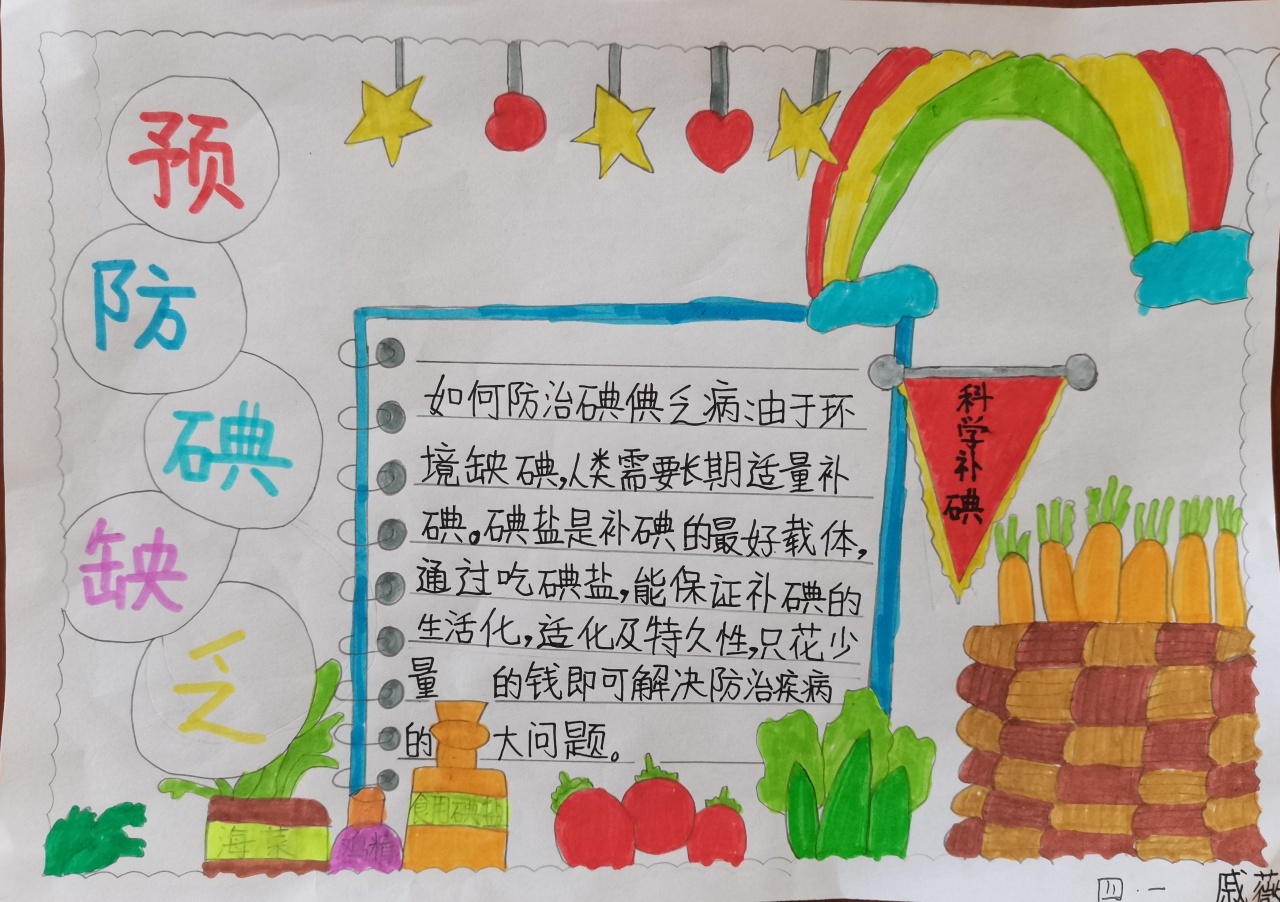 预
防
碘
缺
乏
如何防治碘倎乏病:由于环
境缺碘,人类需要长期适量补
碘。碘盐是补碘的最好载体,
通过吃碘盐,能保证补碘的
生活化,适化及特久性,只花少
量 的钱即可解决防治疾病
的 大问题。
科学补碘
海菜
食用碘盐
四·一 戚薇